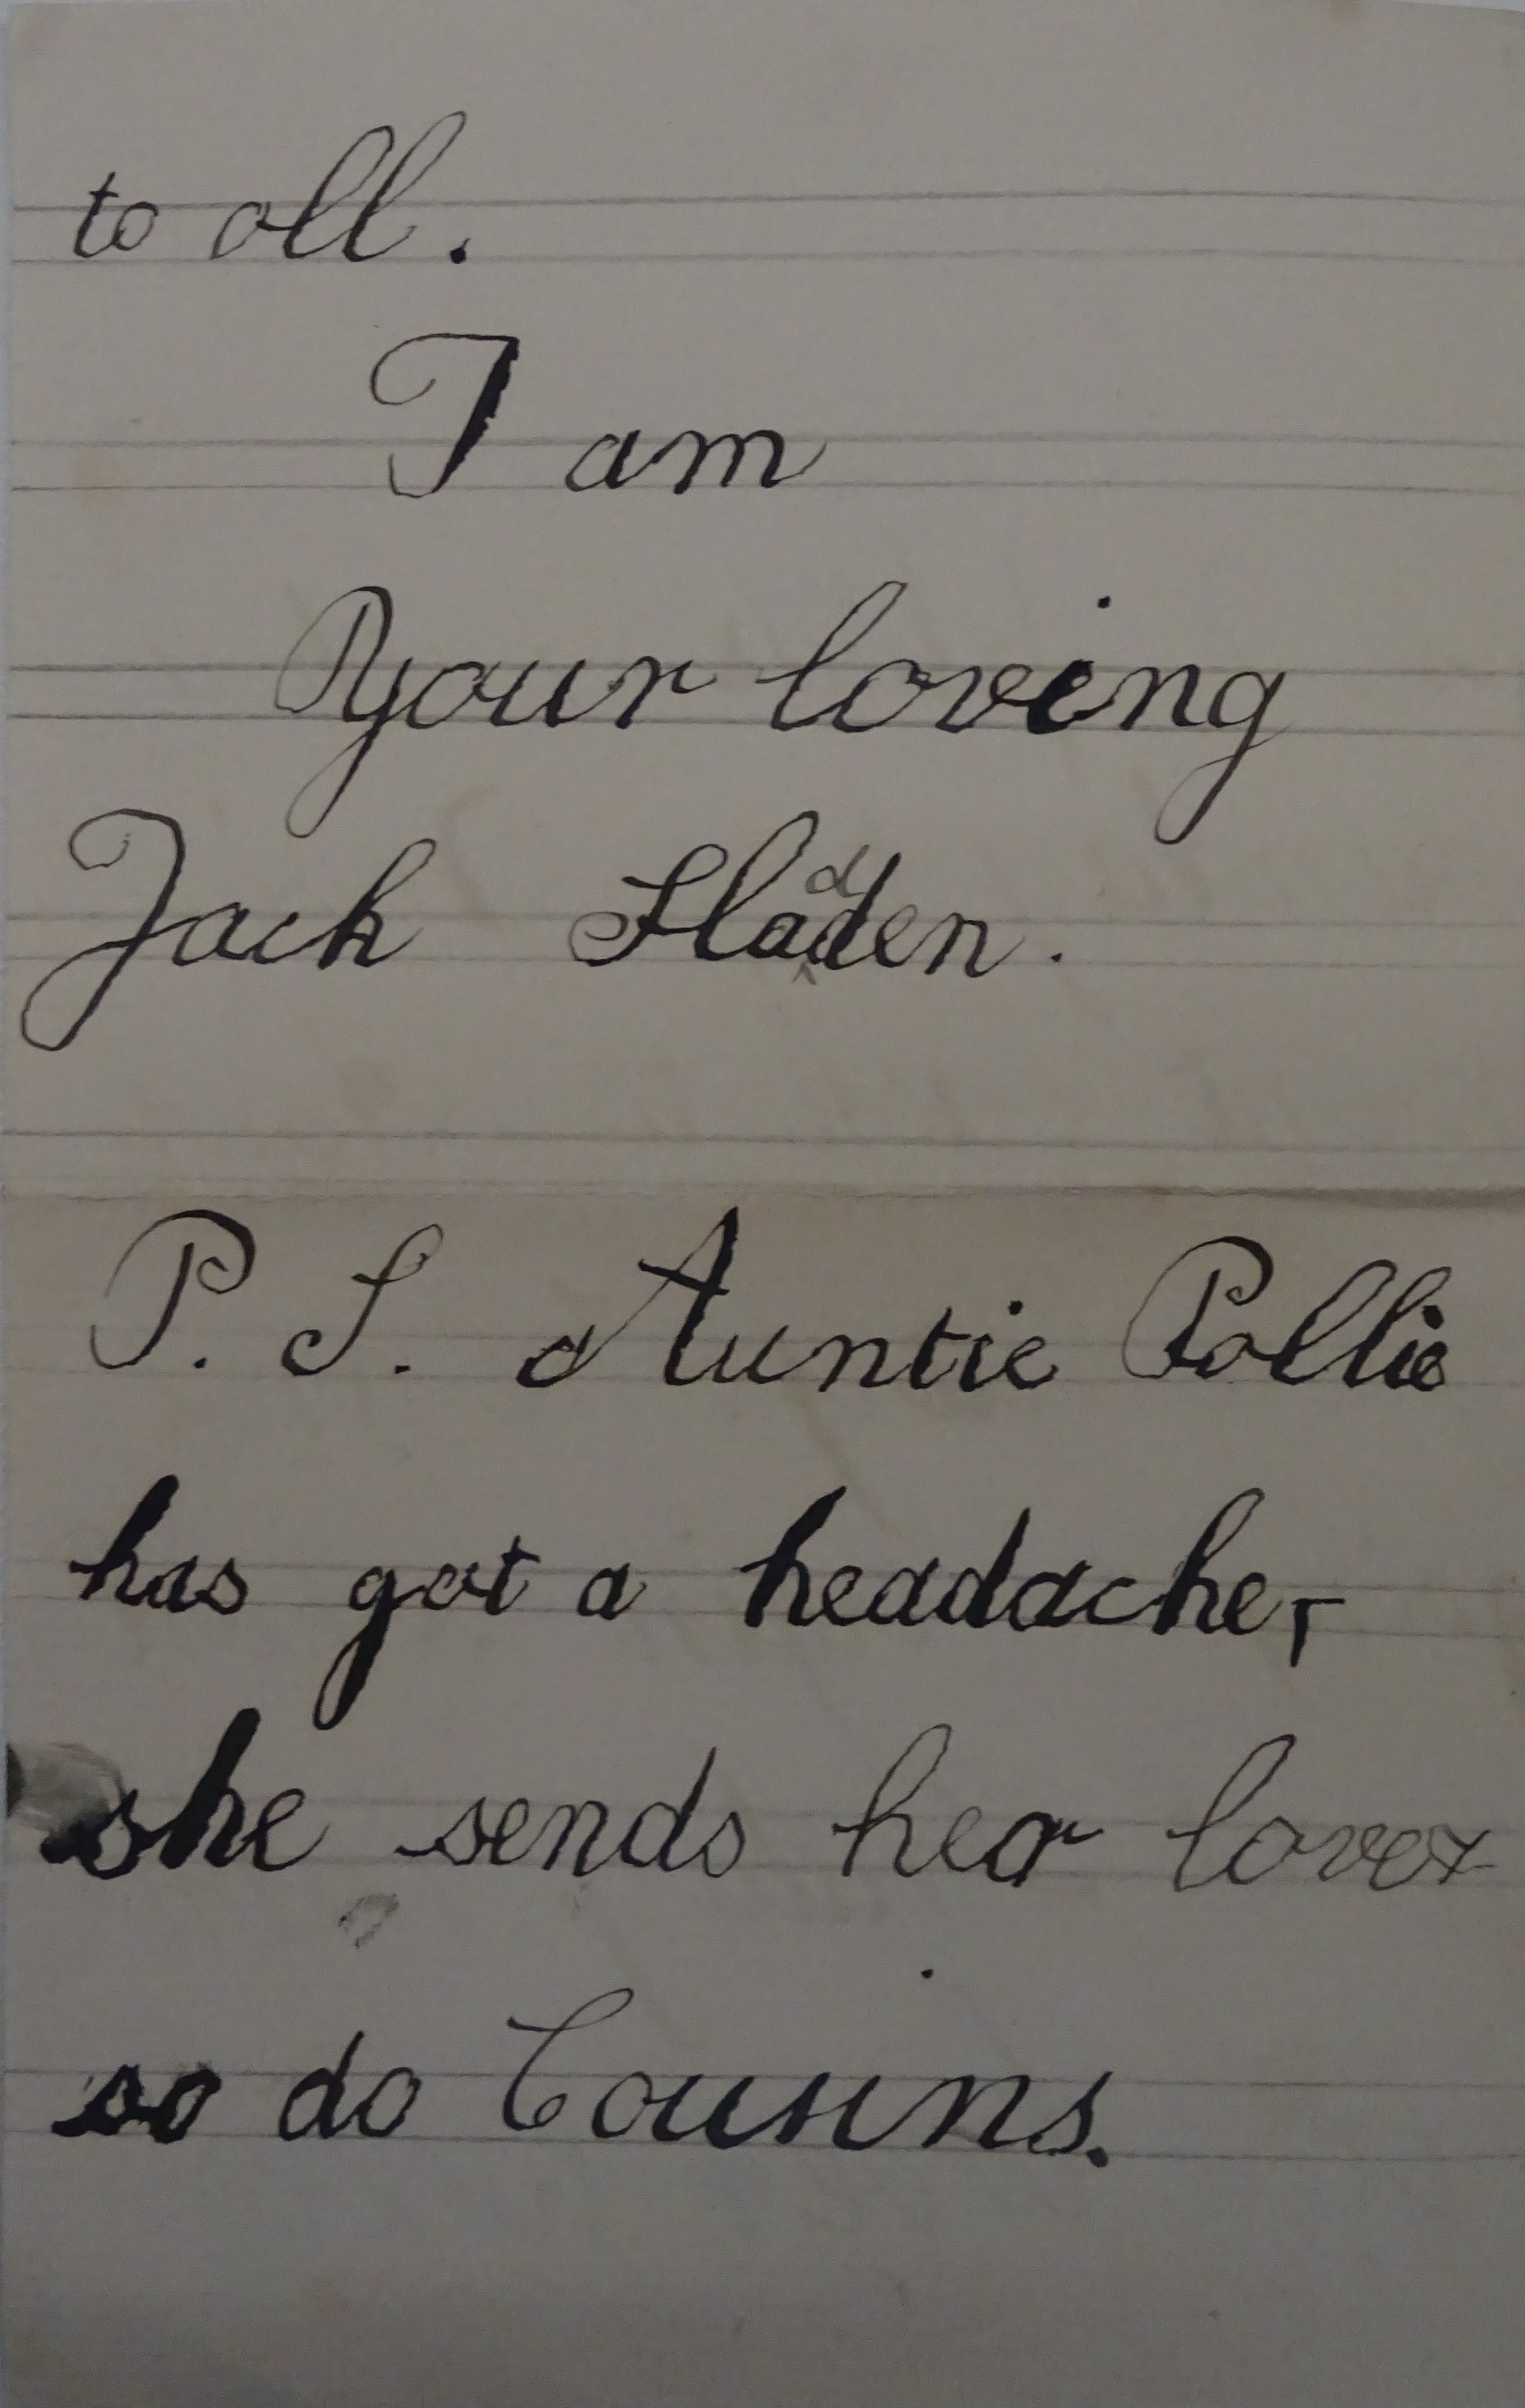 to all.
I am
Your loving
Jack Hladden.
P. S. Auntie Pollie
has got a headache,
she sends her love
so do Cousins.